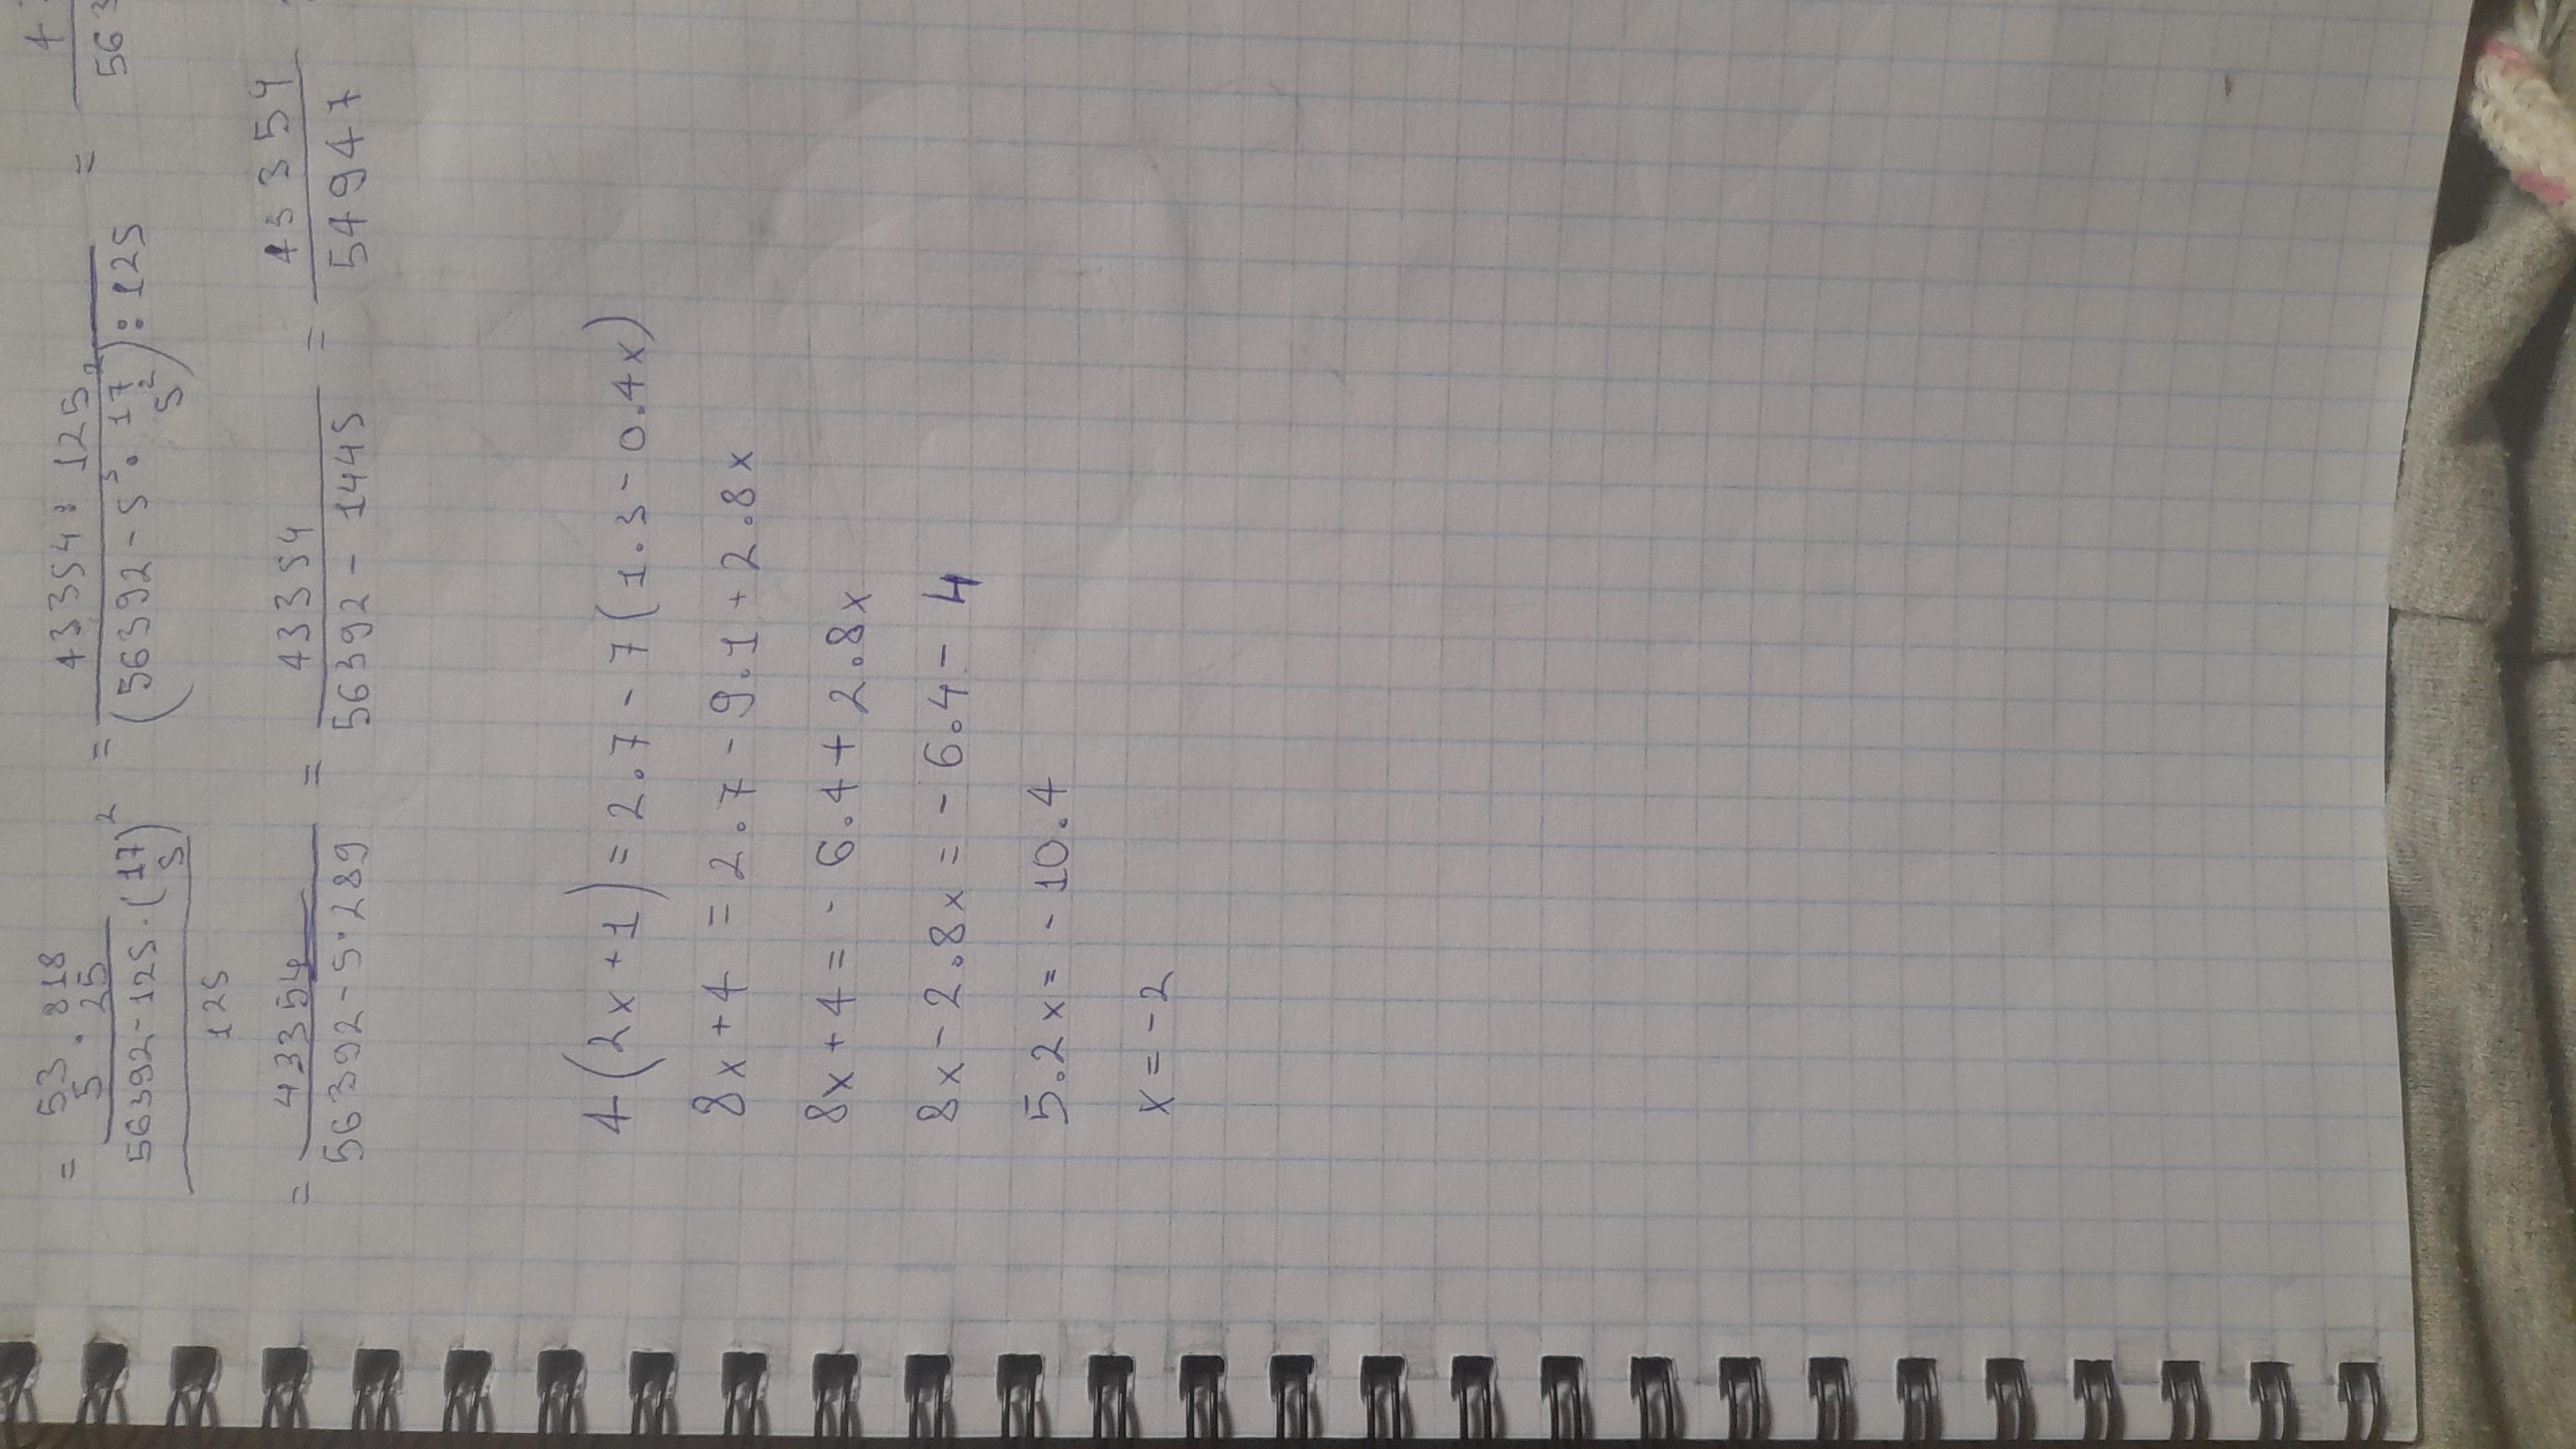 = 53/5 · 818/25 / (56392-125·(17/5)²)/125 = 43354:125 / (56392-5³·17²/5²):125 = 4 / 563
= 43354 / 56392-5·289 = 43354 / 56392-1445 = 43354 / 54947
4(2x+1)=2.7-7(1.3-0.4x)
8x+4=2.7-9.1+2.8x
8x+4=-6.4+2.8x
8x-2.8x=-6.4-4
5.2x=-10.4
x=-2